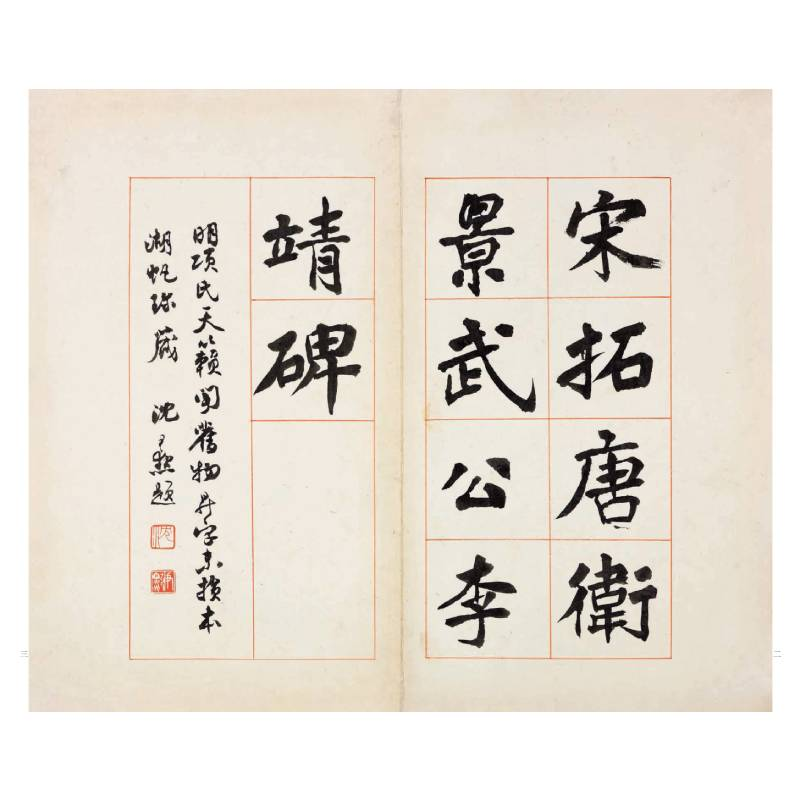 宋拓唐衛
景武公李
靖碑
明項氏天籟閣舊物昇字未損本
湖帆珍藏 沈尹默題
二
三